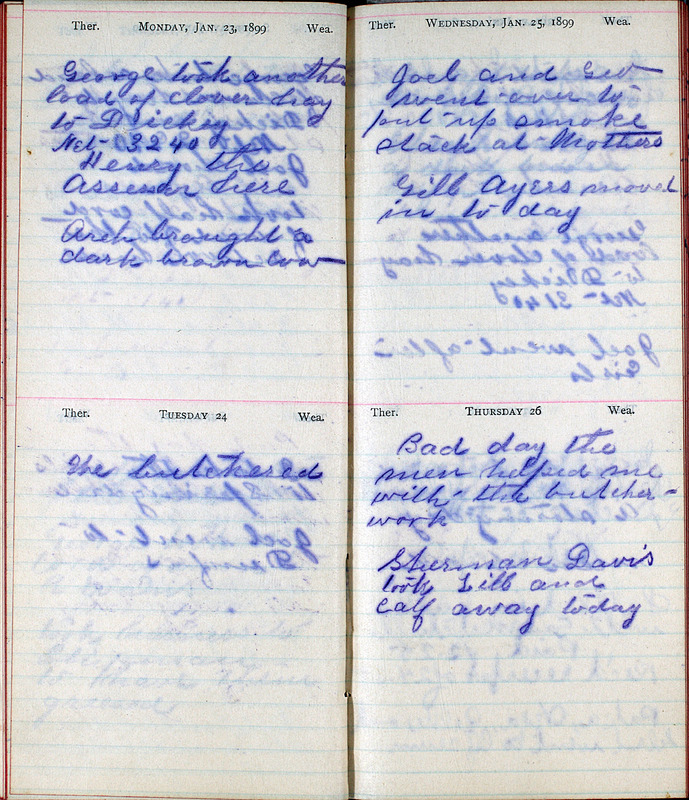 Ther. MONDAY, JAN. 23, 1899 Wea.
George took another
load of clover hay
to Dickey
Net - 3240
Henry the
Assessor here
Arch brought a
dark brown cow
Ther. TUESDAY 24 Wea.
We butchered
Ther. WEDNESDAY, JAN. 25, 1899 Wea.
Joel and Geo
went over to
put up smoke
stack at Mothers
Gill Ayers moved
in to day
Ther. THURSDAY 26 Wea.
Bad day the
men helped me
with the butcher-
work
Sherman Davis
took Lill and
calf away today